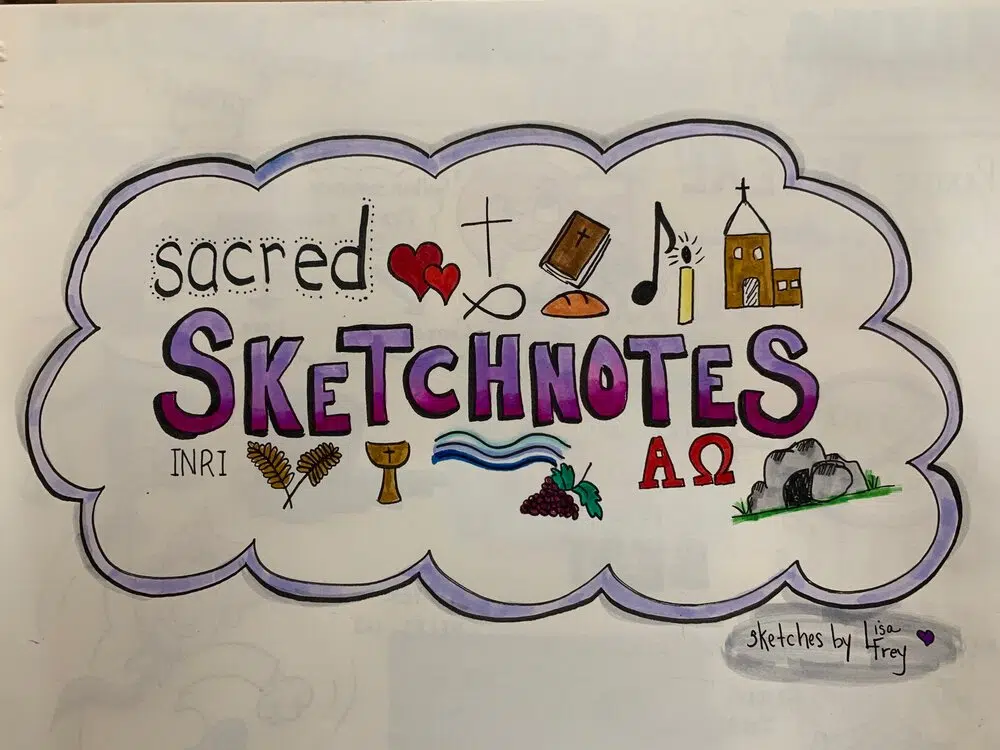 sacred
SKETCHNOTES
INRI
ΑΩ
sketches by Lisa Frey